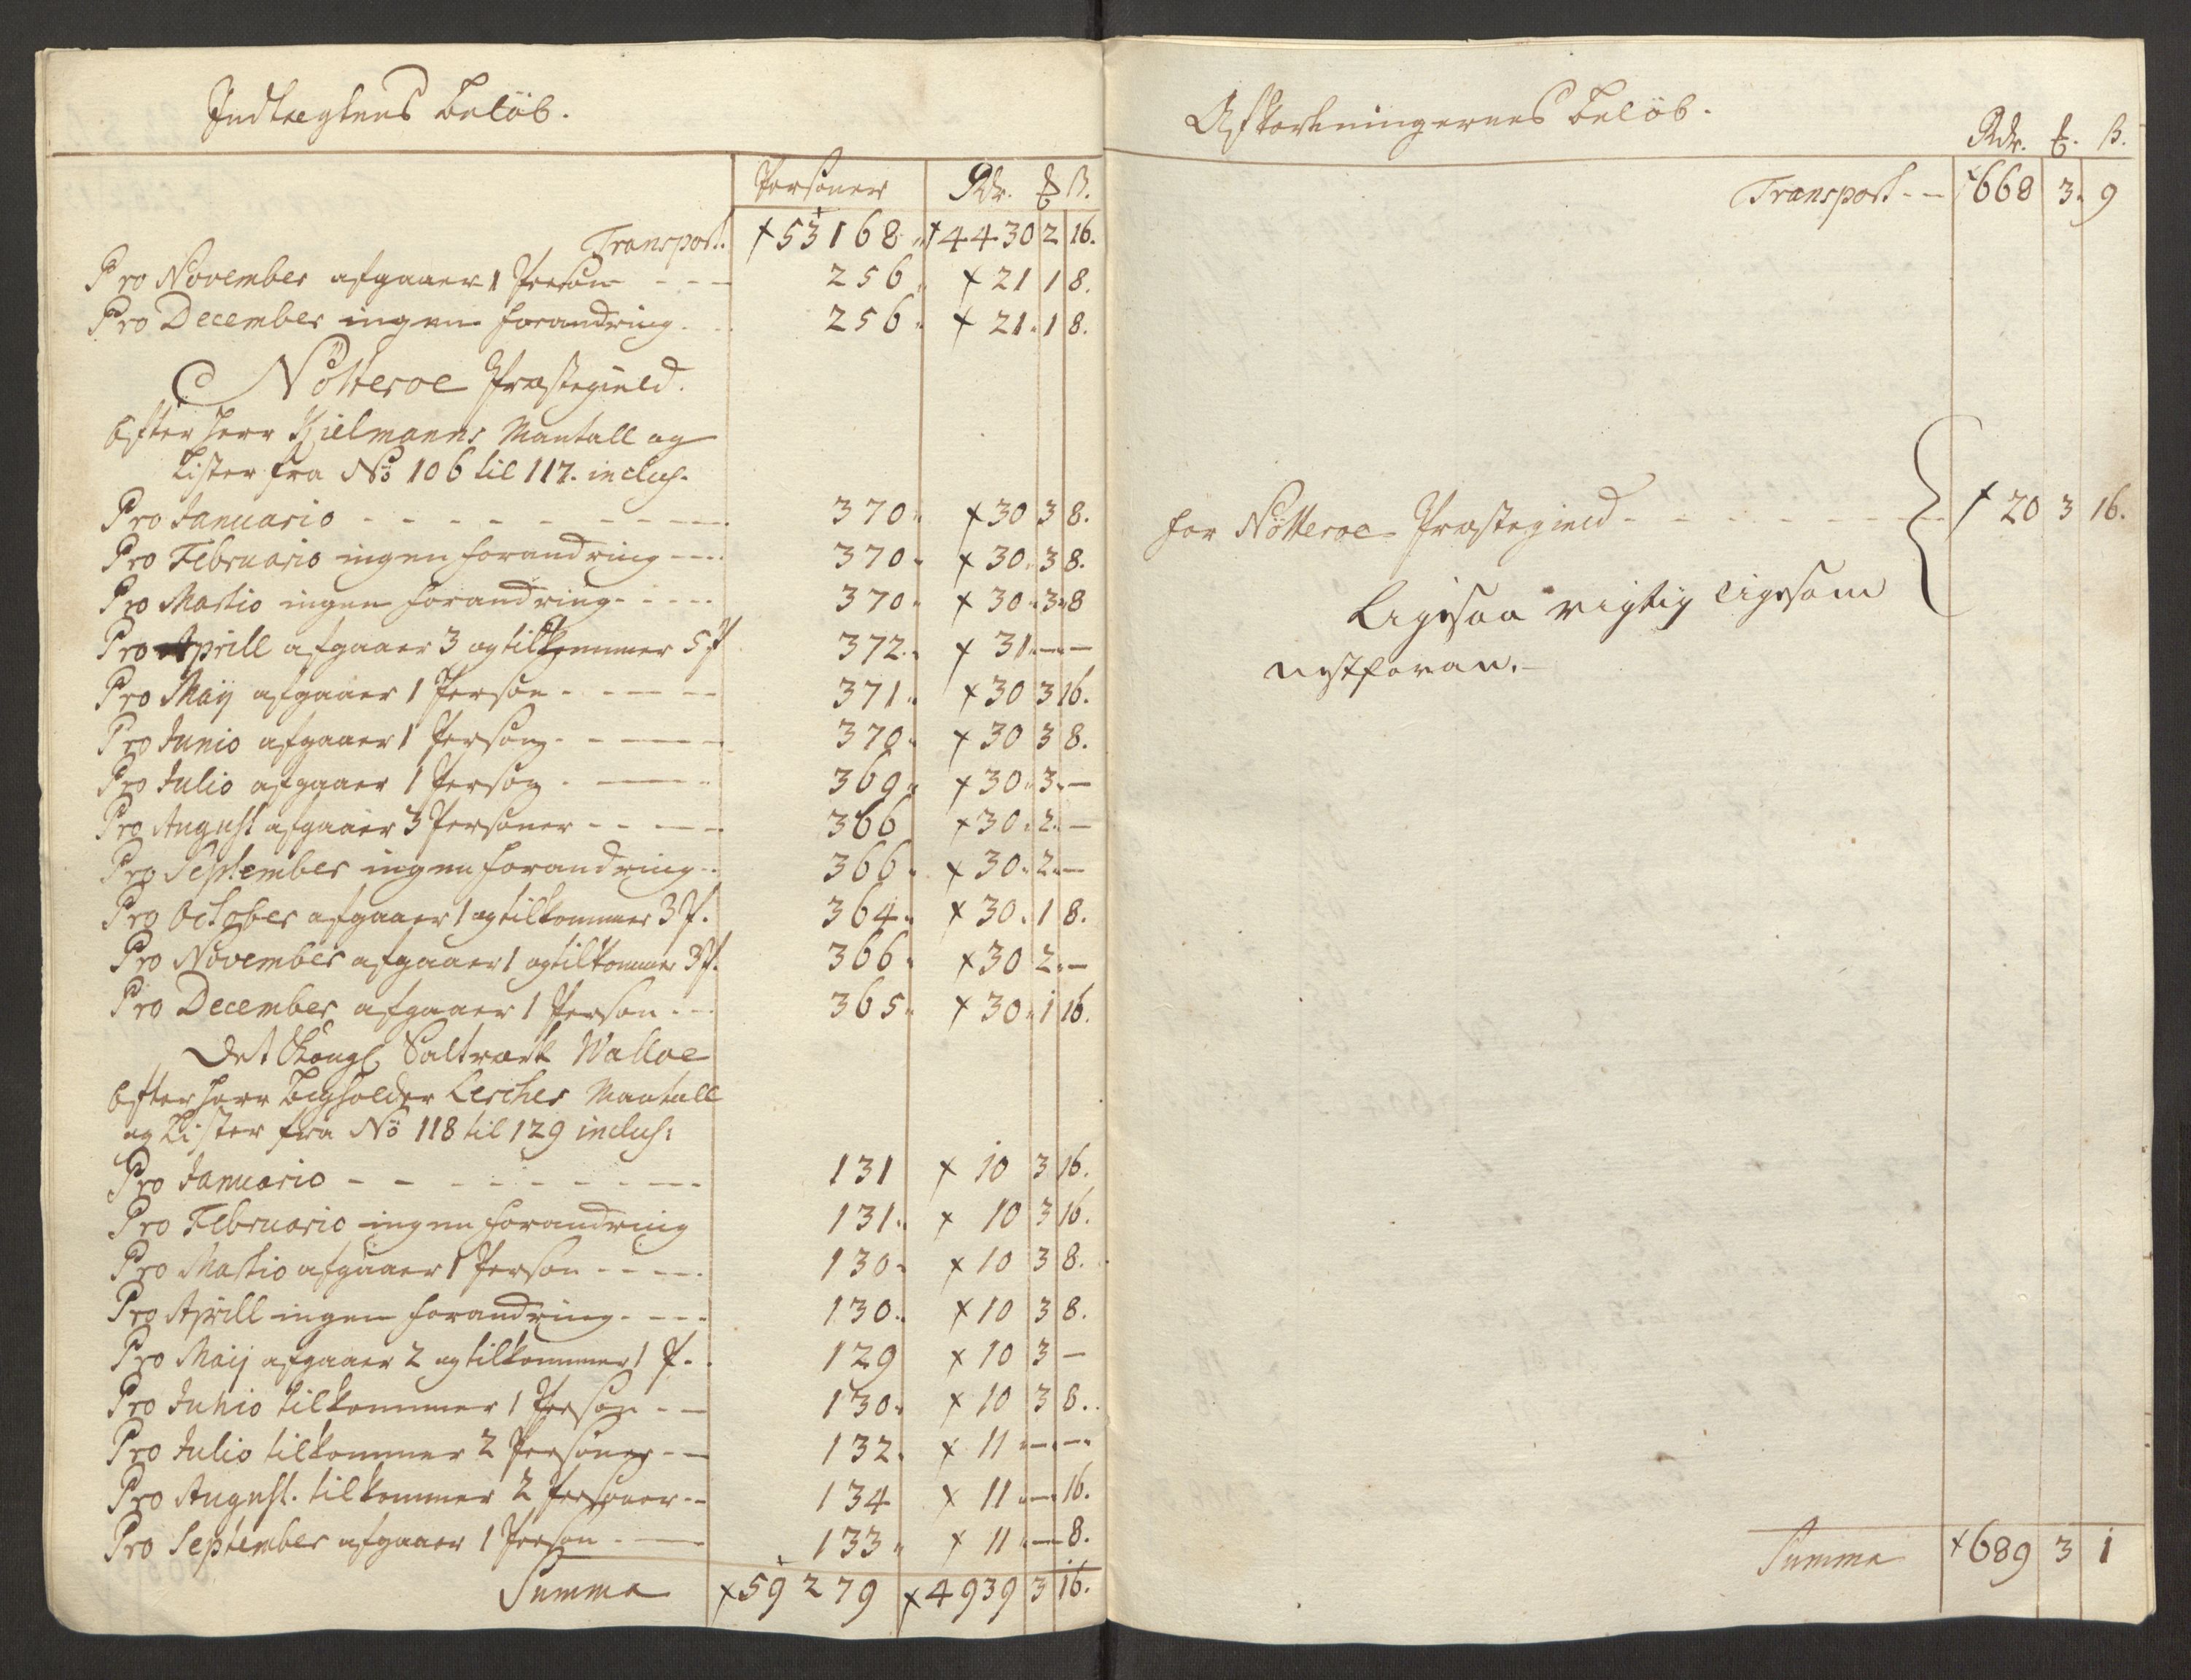 Indtægtens Beløb.
Personer Rdr. ß.
Transport. 53168 4430 2 16.
Pro November afgaaer 1 Person - - - 256 21 1 8.
Pro December ingen forandring. 256 21 1 8.
Nötteroe Præstegield.
Efter Herr Kielmanns Mantall og
Lister fra No 106 til 117. inclus.
Pro Januario - - - - - - - - 370 30 3 8.
Pro Februario ingen forandring - - - 370 30 3 8.
Pro Martio ingen forandring - - - - 370 30 3 8
Pro Aprill afgaaer 3 og tilkommer 5 P 372 31 — —
Pro Maÿ afgaaer 1 Person - - - - 371 30 3 16.
Pro Junio afgaaer 1 Person - - - - 370 30 3 8.
Pro Julio afgaaer 1 Person - - - - 369 30 3 —
Pro August afgaaer 3 Personer - - - - 366 30 2 —
Pro September ingen forandring - 366 30 2 —
Pro October afgaaer 1 og tilkommer 3 P. 364 30 1 8.
Pro November afgaaer 1 og tilkommer 3 P. 366 30 2 —
Pro December afgaaer 1 Person - - 365 30 1 16.
Det Kongl Saltværk Walloe
Efter Herr Bogholder Lerches Mantall
og Lister fra No 118 til 129 inclus:
Pro Januario - - - - - - - - 131 10 3 16.
Pro Februario ingen forandring 131 10 3 16.
Pro Martio afgaaer 1 Person - - - - 130 10 3 8.
Pro Aprill ingen forandring - - - - 130 10 3 8.
Pro Maij afgaaer 2 og tilkommer 1 P. 129 10 3 —
Pro Junio tilkommer 1 Person - - 130 10 3 8.
Pro Julio tilkommer 2 Personer - - 132 11 — —
Pro August. tilkommer 2 Personer - - 134 11 — 16.
Pro September afgaaer 1 Person - - - 133 11 — 8.
Summa 59279 4939 3 16.
Afkortningernes Beløb.
Rdr. ß.
Transport - - 668 3 9
for Nötteroe Præstegield - - - - - - - 20 3 16.
Ligesaa rigtig ligesom
nestforan.
Summa 689 3 1